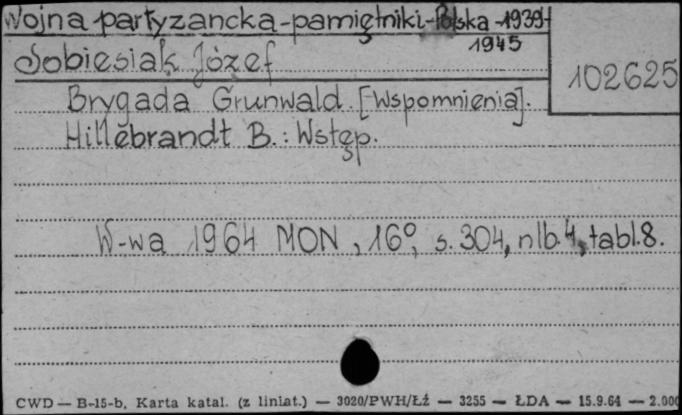 Wojna partyzancka-pamiętniki-Polska-1939-
1945
Sobiesiak Józef
102625
Brygada Grunwald. [Wspomnienia].
Hillebrandt B.: Wstęp.
W-wa 1964 MON, 16°, s. 304, nlb. 4, tabl. 8.
CWD — B-15-b, Karta katal. (z liniat.) — 3020/PWH/Łź — 3255 — ŁDA — 15.9.64 — 2.000